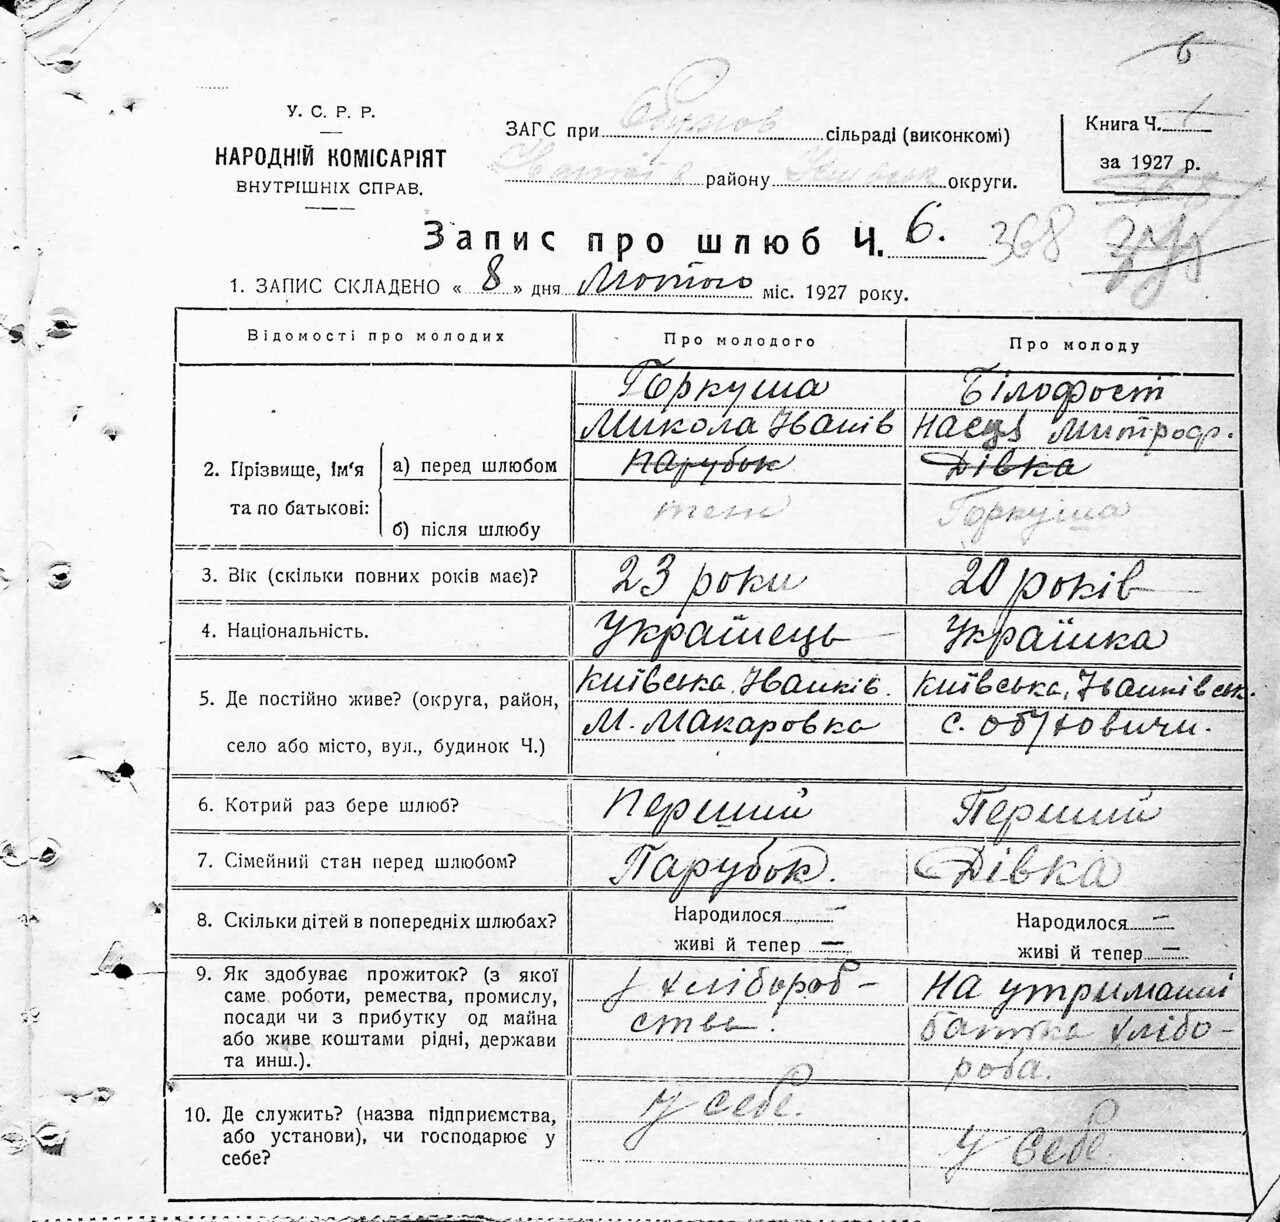 6
У. С. Р. Р.
НАРОДНІЙ КОМІСАРІЯТ
ВНУТРІШНІХ СПРАВ.
ЗАГС при сільраді (виконкомі)
району округи.
Книга Ч. 1
за 1927 р.
368
Запис про шлюб Ч. 6. 368
1. ЗАПИС СКЛАДЕНО « 8 » дня Лютого міс. 1927 року.
Відомості про молодих Про молодого Про молоду
Горкуша Білофост
Микола Іванів Настя Митроф.
2. Прізвище, ім'я та по батькові: а) перед шлюбом парубок дівка
б) після шлюбу теж Горкуша
3. Вік (скільки повних років має)? 23 роки 20 років
4. Національність. Українець Українка
5. Де постійно живе? (округа, район, село або місто, вул., будинок Ч.) Київська, Іванків. Київська, Іванківськ.
М. Макаровка с. Обуховичи.
6. Котрий раз бере шлюб? Перший Перший
7. Сімейний стан перед шлюбом? Парубок. Дівка
8. Скільки дітей в попередніх шлюбах? Народилося — Народилося —
живі й тепер — живі й тепер —
9. Як здобуває прожиток? (з якої У хлібороб- На утриманні
саме роботи, ремества, промислу, ства. батька хлібо-
посади чи з прибутку од майна роба.
або живе коштами рідні, держави
та инш.).
10. Де служить? (назва підприємства, У себе.
або установи), чи господарює у У себе.
себе?